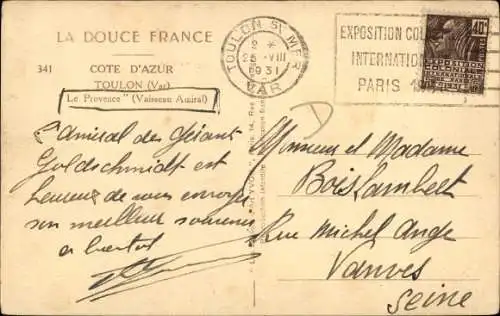 LA DOUCE FRANCE
341 COTE D'AZUR
TOULON (Var)
Le Provence " (Vaisseau Amiral)
TOULON Sr MER
2 *
25 -VIII
1931
VAR
EXPOSITION COL
INTERNATION
PARIS 19
40c
L'amiral de
Goldschmidt est
heureux de vous envoyer
son meilleur souvenir
a bientot
Monsieur et Madame
Bois Lambert
Rue Michel Ange
Vanves
Seine